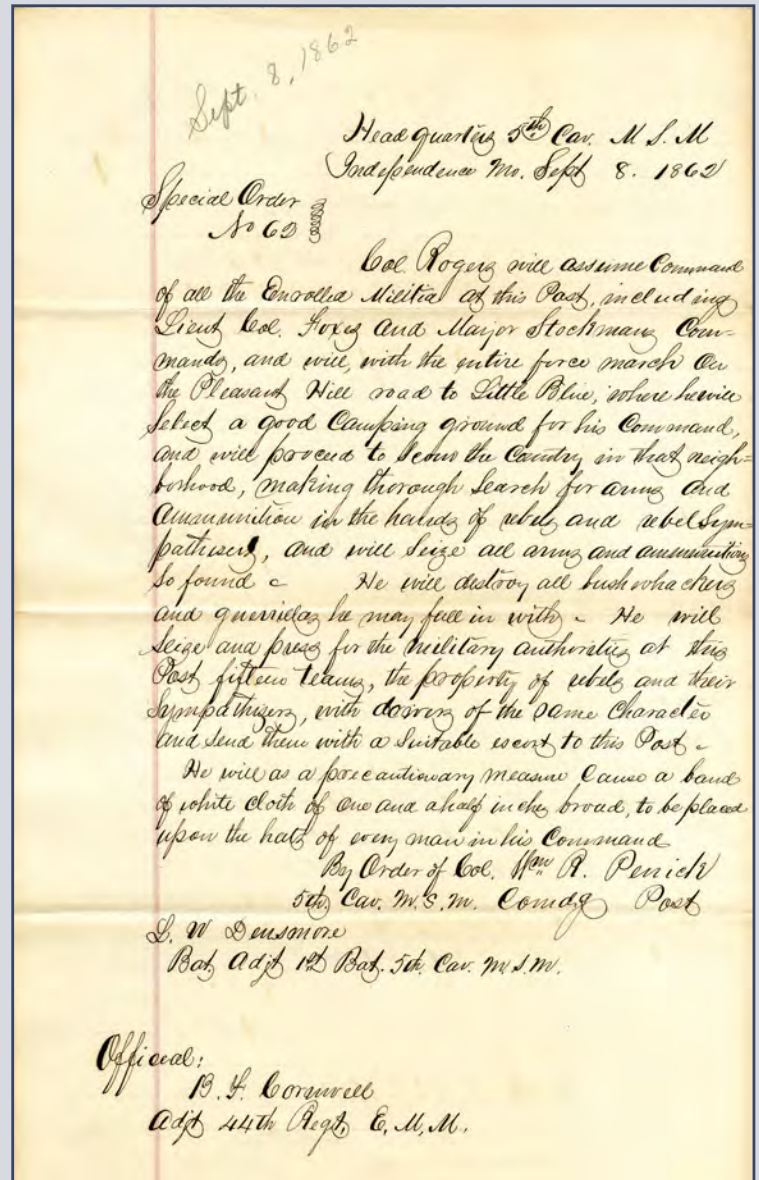 Sept. 8, 1862
Head quarters 5th Cav. M S. M
Independence Mo. Sept 8. 1862
Special Order
No 62
Col. Rogers will assume Command
of all the Enrolled Militia at this Post, including
Lieut Col. Foxes and Marjor Stockmans Com=
mands, and will, with the entire force march on
the Pleasant Hill road to Little Blue, where he will
Select a good Camping ground for his Command,
and will proceed to scour the Country in that neigh=
borhood, making thorough Search for arms and
Ammunition in the hands of rebels and rebel Sym=
pathisers, and will Seize all arms and ammunition
So found - He will destroy all bushwhackers
and guerrillas he may fall in with - He will
Seize and press for the military authorities at this
Post fifteen teams, the property of rebels and their
Sympathizers, with drivers of the same Character
and Send them with a Suitable escort to this Post -
He will as a precautionary measure Cause a band
of white cloth of one and a half inches broad, to be placed
upon the hats of every man in his Command
By Order of Col. Wm R. Penick
5th Cav. M. S. M. Comdg Post
L. W Densmore
Bat Adjt 1st Bat. 5th Cav. M. S. M.
Official:
B. F. Cornwell
Adjt 44th Regt. E. M. M.